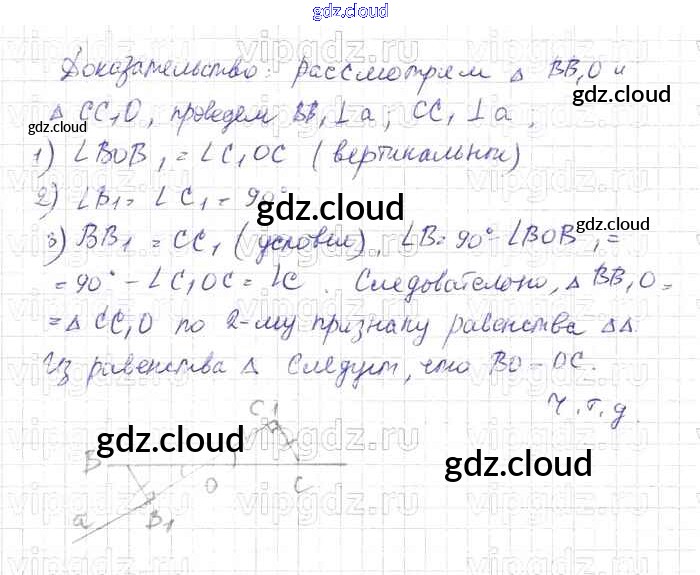 gdz.cloud
Доказательство: рассмотрем △ BB₁O и
△ CC₁O, проведем BB₁⊥a; CC₁⊥a,
1) ∠BOB₁ = ∠C₁OC (вертикальные)
2) ∠B₁ = ∠C₁ = 90°
3) BB₁ = CC₁ (условие), ∠B = 90° - ∠BOB₁ =
= 90° - ∠C₁OC = ∠C. Следовательно, △ BB₁O =
= △ CC₁O по 2-му признаку равенства △△.
Из равенства △ следует, что BO = OC.
Ч.т.д.
C₁
B O C
a B₁
gdz.cloud
gdz.cloud
gdz.cloud
gdz.cloud
gdz.cloud
gdz.cloud
gdz.cloud
vipgdz.ru